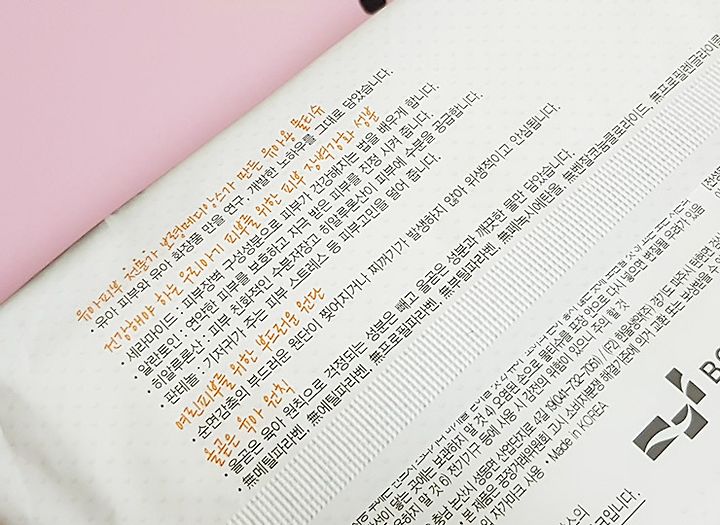 유아피부 전문가 보령메디앙스가 만든 유아용 물티슈
• 유아 피부와 유아 화장품 만을 연구, 개발한 노하우를 그대로 담았습니다.
건강해야 하는 우리아기 피부를 위한 피부 장벽강화 성분
• 세라마이드 : 피부장벽 구성성분으로 피부가 건강해지는 법을 배우게 합니다.
• 알란토인 : 연약한 피부를 보호하고 자극 받은 피부를 진정 시켜 줍니다.
• 히알루론산 : 피부 친화적인 수분저장고 히알루론산이 피부에 수분을 공급합니다.
• 판테놀 : 기저귀가 주는 피부 스트레스 등 피부고민을 덜어 줍니다.
여린피부를 위한 보드러운 원단
• 순면감촉의 부드러운 원단이 찢어지거나 찌꺼기가 발생하지 않아 위생적이고 안심됩니다.
올곧은 육아 원칙
• 올곧은 육아 원칙으로 걱정되는 성분은 빼고 올곧은 성분과 깨끗한 물만 담았습니다.
• 無메틸파라벤, 無에틸파라벤, 無프로필파라벤, 無부틸파라벤, 無페녹시에탄올, 無벤잘코늄클로라이드, 無프로필렌글라이콜
보관하지 말 것 4) 오염된 손으로 물티슈를 포장 안으로 다시 넣으면 변질될 우려가 있
6) 전기기구 등에 사용 시 감전의 위험이 있으니 주의 할 것
충남 논산시 성동면 산업단지로 4길
• 본 제품은 공정거래위원회 고시 소비자분쟁 해결기준에 의거 교환 또는
자가마크 사용 • Made in KOREA